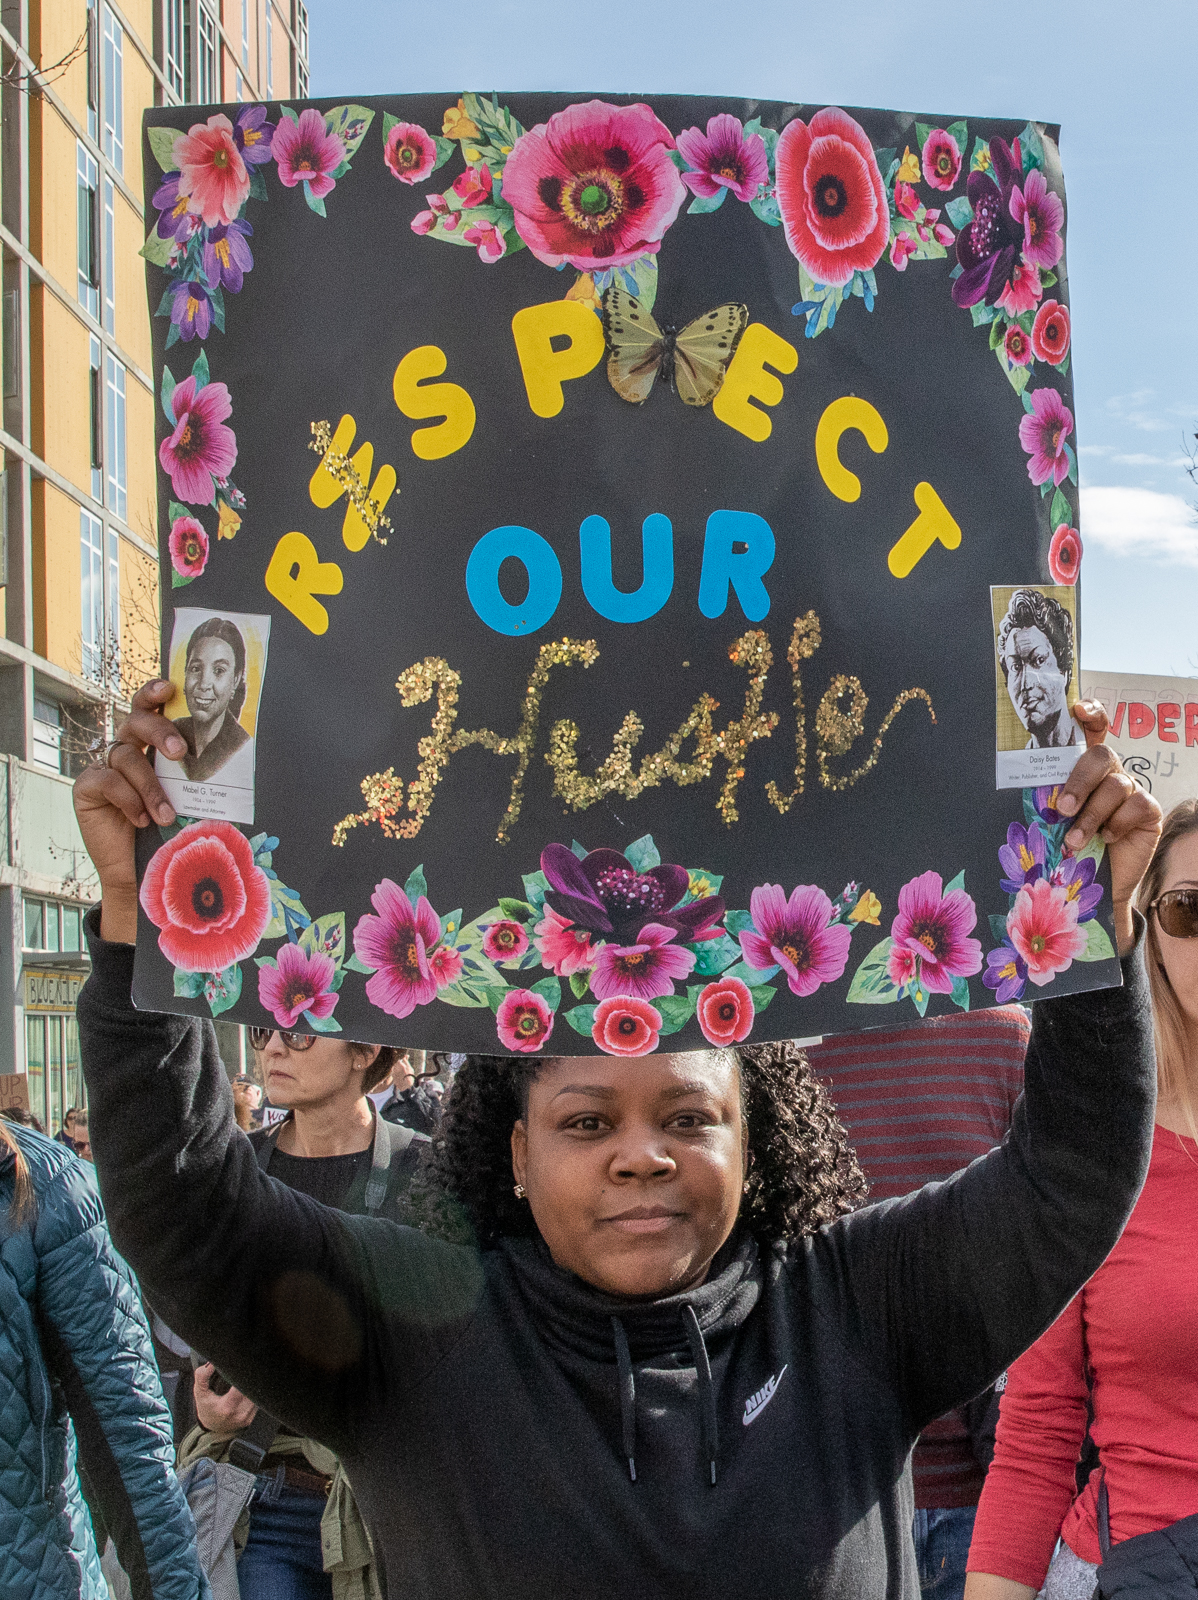 RESPECT
OUR
Hustle
Mabel G. Turner
1904 - 1999
Lawmaker and Attorney
Daisy Bates
1914 - 1999
Writer, Publisher, and Civil Rights
NIKE
UP